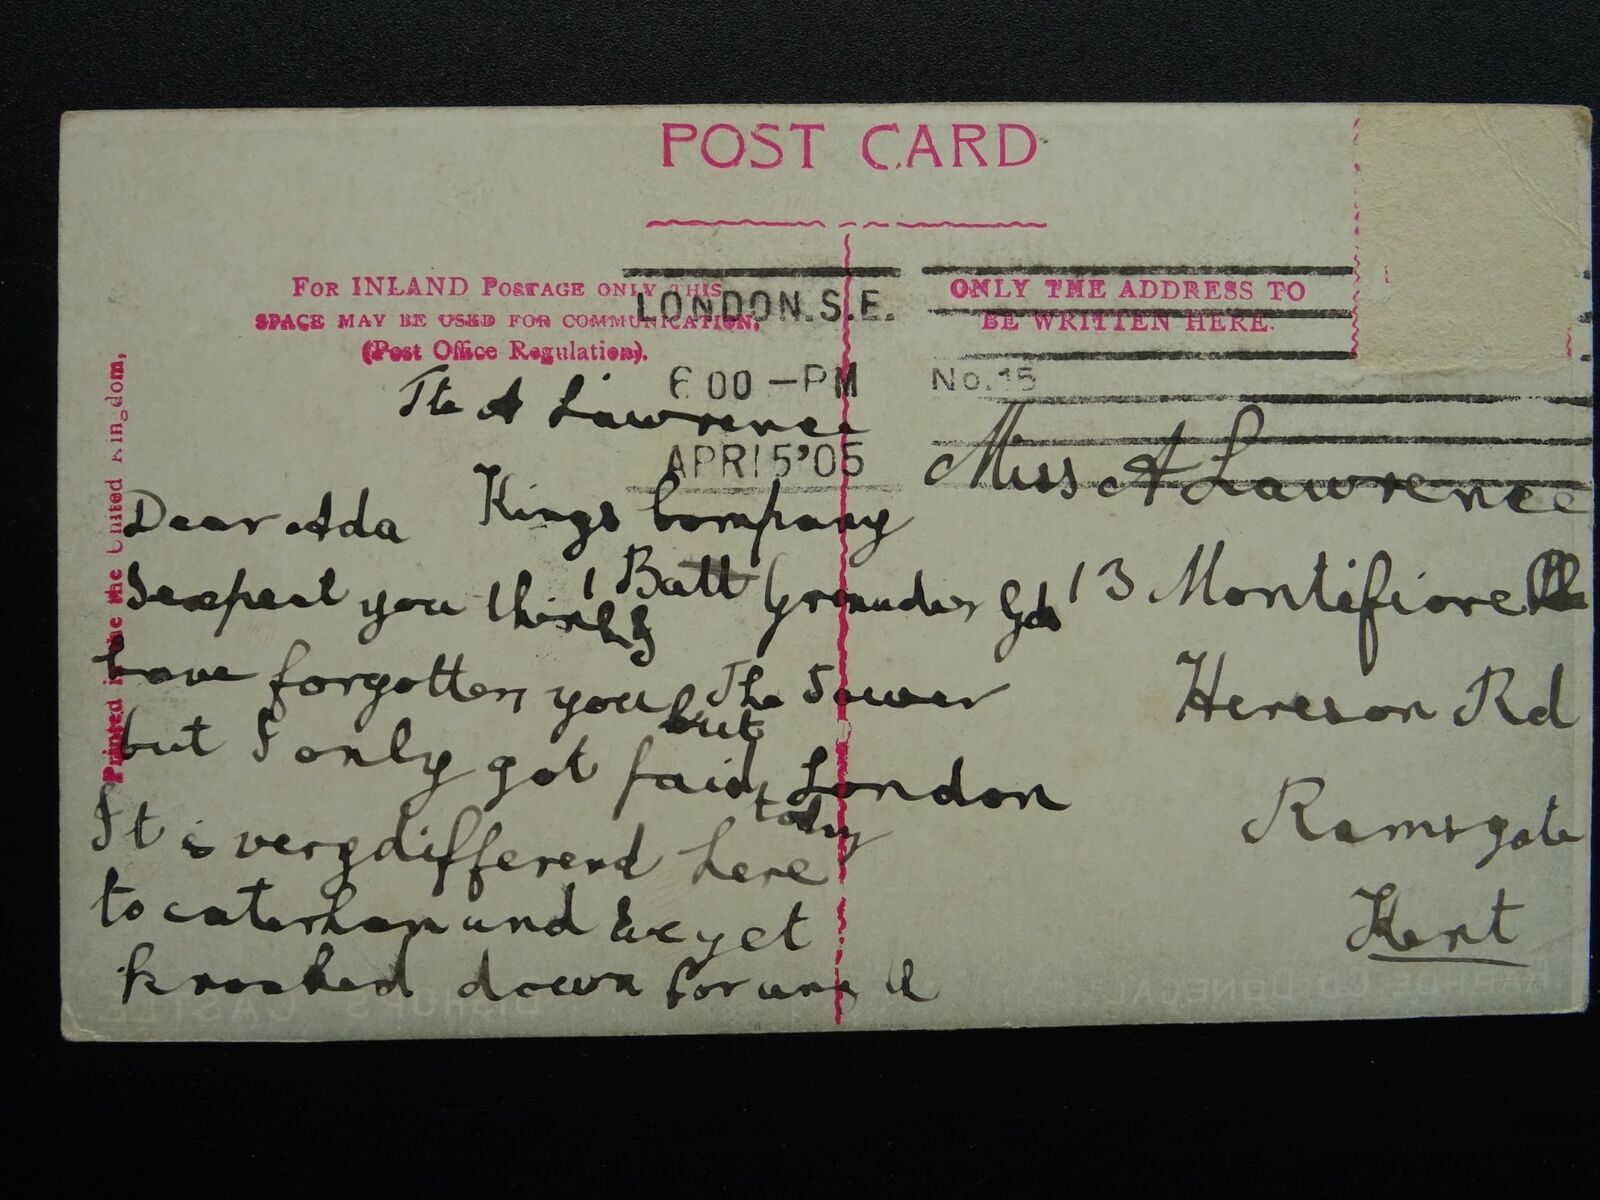 POST CARD
FOR INLAND POSTAGE ONLY THIS
SPACE MAY BE USED FOR COMMUNICATION.
(Post Office Regulation).
ONLY THE ADDRESS TO
BE WRITTEN HERE.
Printed in the United Kingdom,
LONDON.S.E.
6 00 - PM
APR 15 '05
No. 15
A Lawrence
Kings Company
1 Batt Grenadier Gds
The Tower
London
Dear Ada
I expect you think I
have forgotten you but
but I only got paid today
It is very differend here
to caterham and
knocked down for
Miss A Lawrence
13 Montifiore
Hereson Rd
Ramsgate
Kent
BISHOPS CASTLE
RAPHOE CO DONEGAL